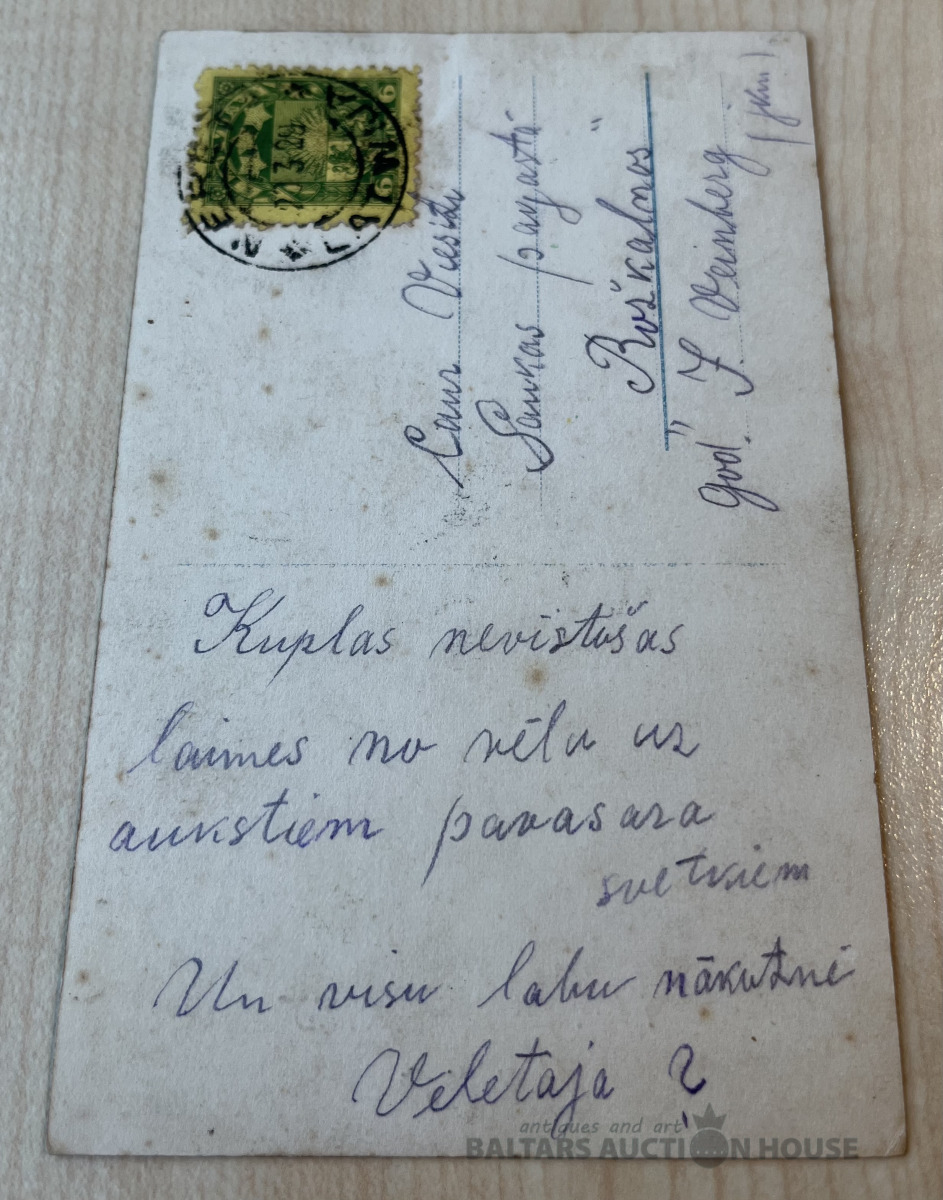 6 6
LATVIJA
Caur Viesīti
Saukas pagastā
" Roškalnos
god." J. Veinberg
Kuplas nevistošas
laimes no vēlu uz
aukstiem pavasara
svetkiem
Un visu labu nākotnē
Vēlētāja ?
antiques and art
BALTARS AUCTION HOUSE